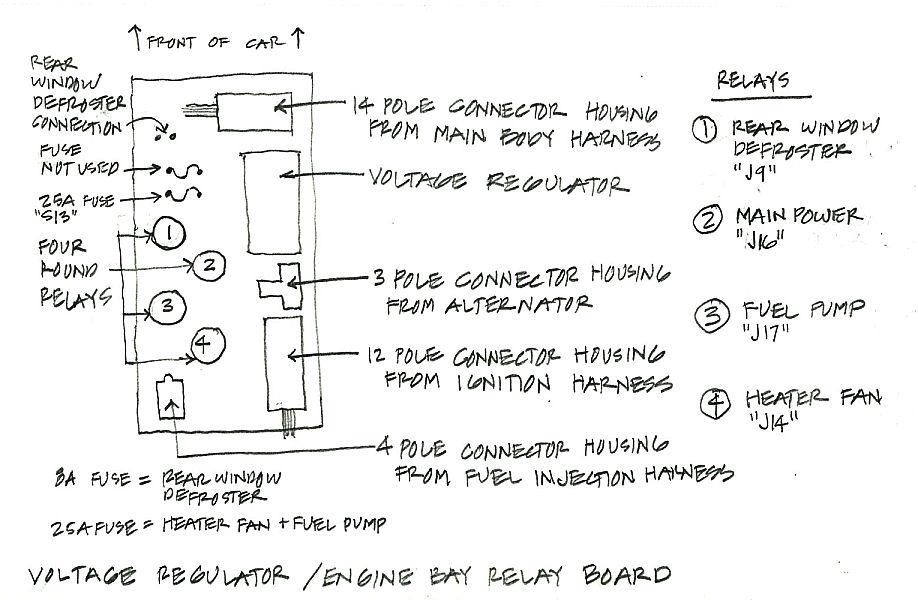 ↑ FRONT OF CAR ↑
REAR
WINDOW
DEFROSTER
CONNECTION
FUSE
NOT USED
25A FUSE
"S13"
FOUR
ROUND
RELAYS
1
2
3
4
14 POLE CONNECTOR HOUSING
FROM MAIN BODY HARNESS
VOLTAGE REGULATOR
3 POLE CONNECTOR HOUSING
FROM ALTERNATOR
12 POLE CONNECTOR HOUSING
FROM IGNITION HARNESS
4 POLE CONNECTOR HOUSING
FROM FUEL INJECTION HARNESS
RELAYS
1 REAR WINDOW
DEFROSTER
"J9"
2 MAIN POWER
"J16"
3 FUEL PUMP
"J17"
4 HEATER FAN
"J14"
8A FUSE = REAR WINDOW
DEFROSTER
25A FUSE = HEATER FAN + FUEL PUMP
VOLTAGE REGULATOR / ENGINE BAY RELAY BOARD